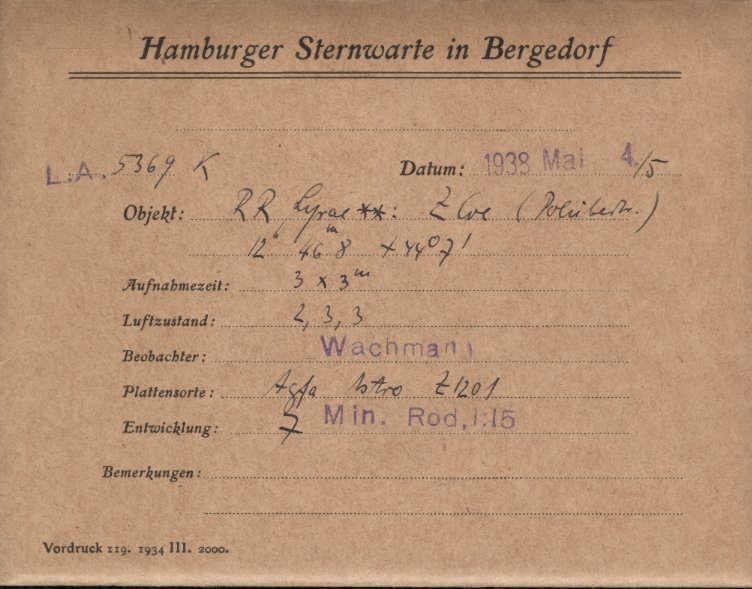 Hamburger Sternwarte in Bergedorf
L.A. 5369 K Datum: 1938 Mai 4./5
Objekt: RR Lyrae **: Z CVe (Polübertr.)
12h 46m8 +44°7'
Aufnahmezeit: 3 x 3m
Luftzustand: 2, 3, 3
Beobachter: Wachmann
Plattensorte: Agfa Astro Z1201
Entwicklung: 7 Min. Rod, 1:15
Bemerkungen:
Vordruck 119. 1934 III. 2000.